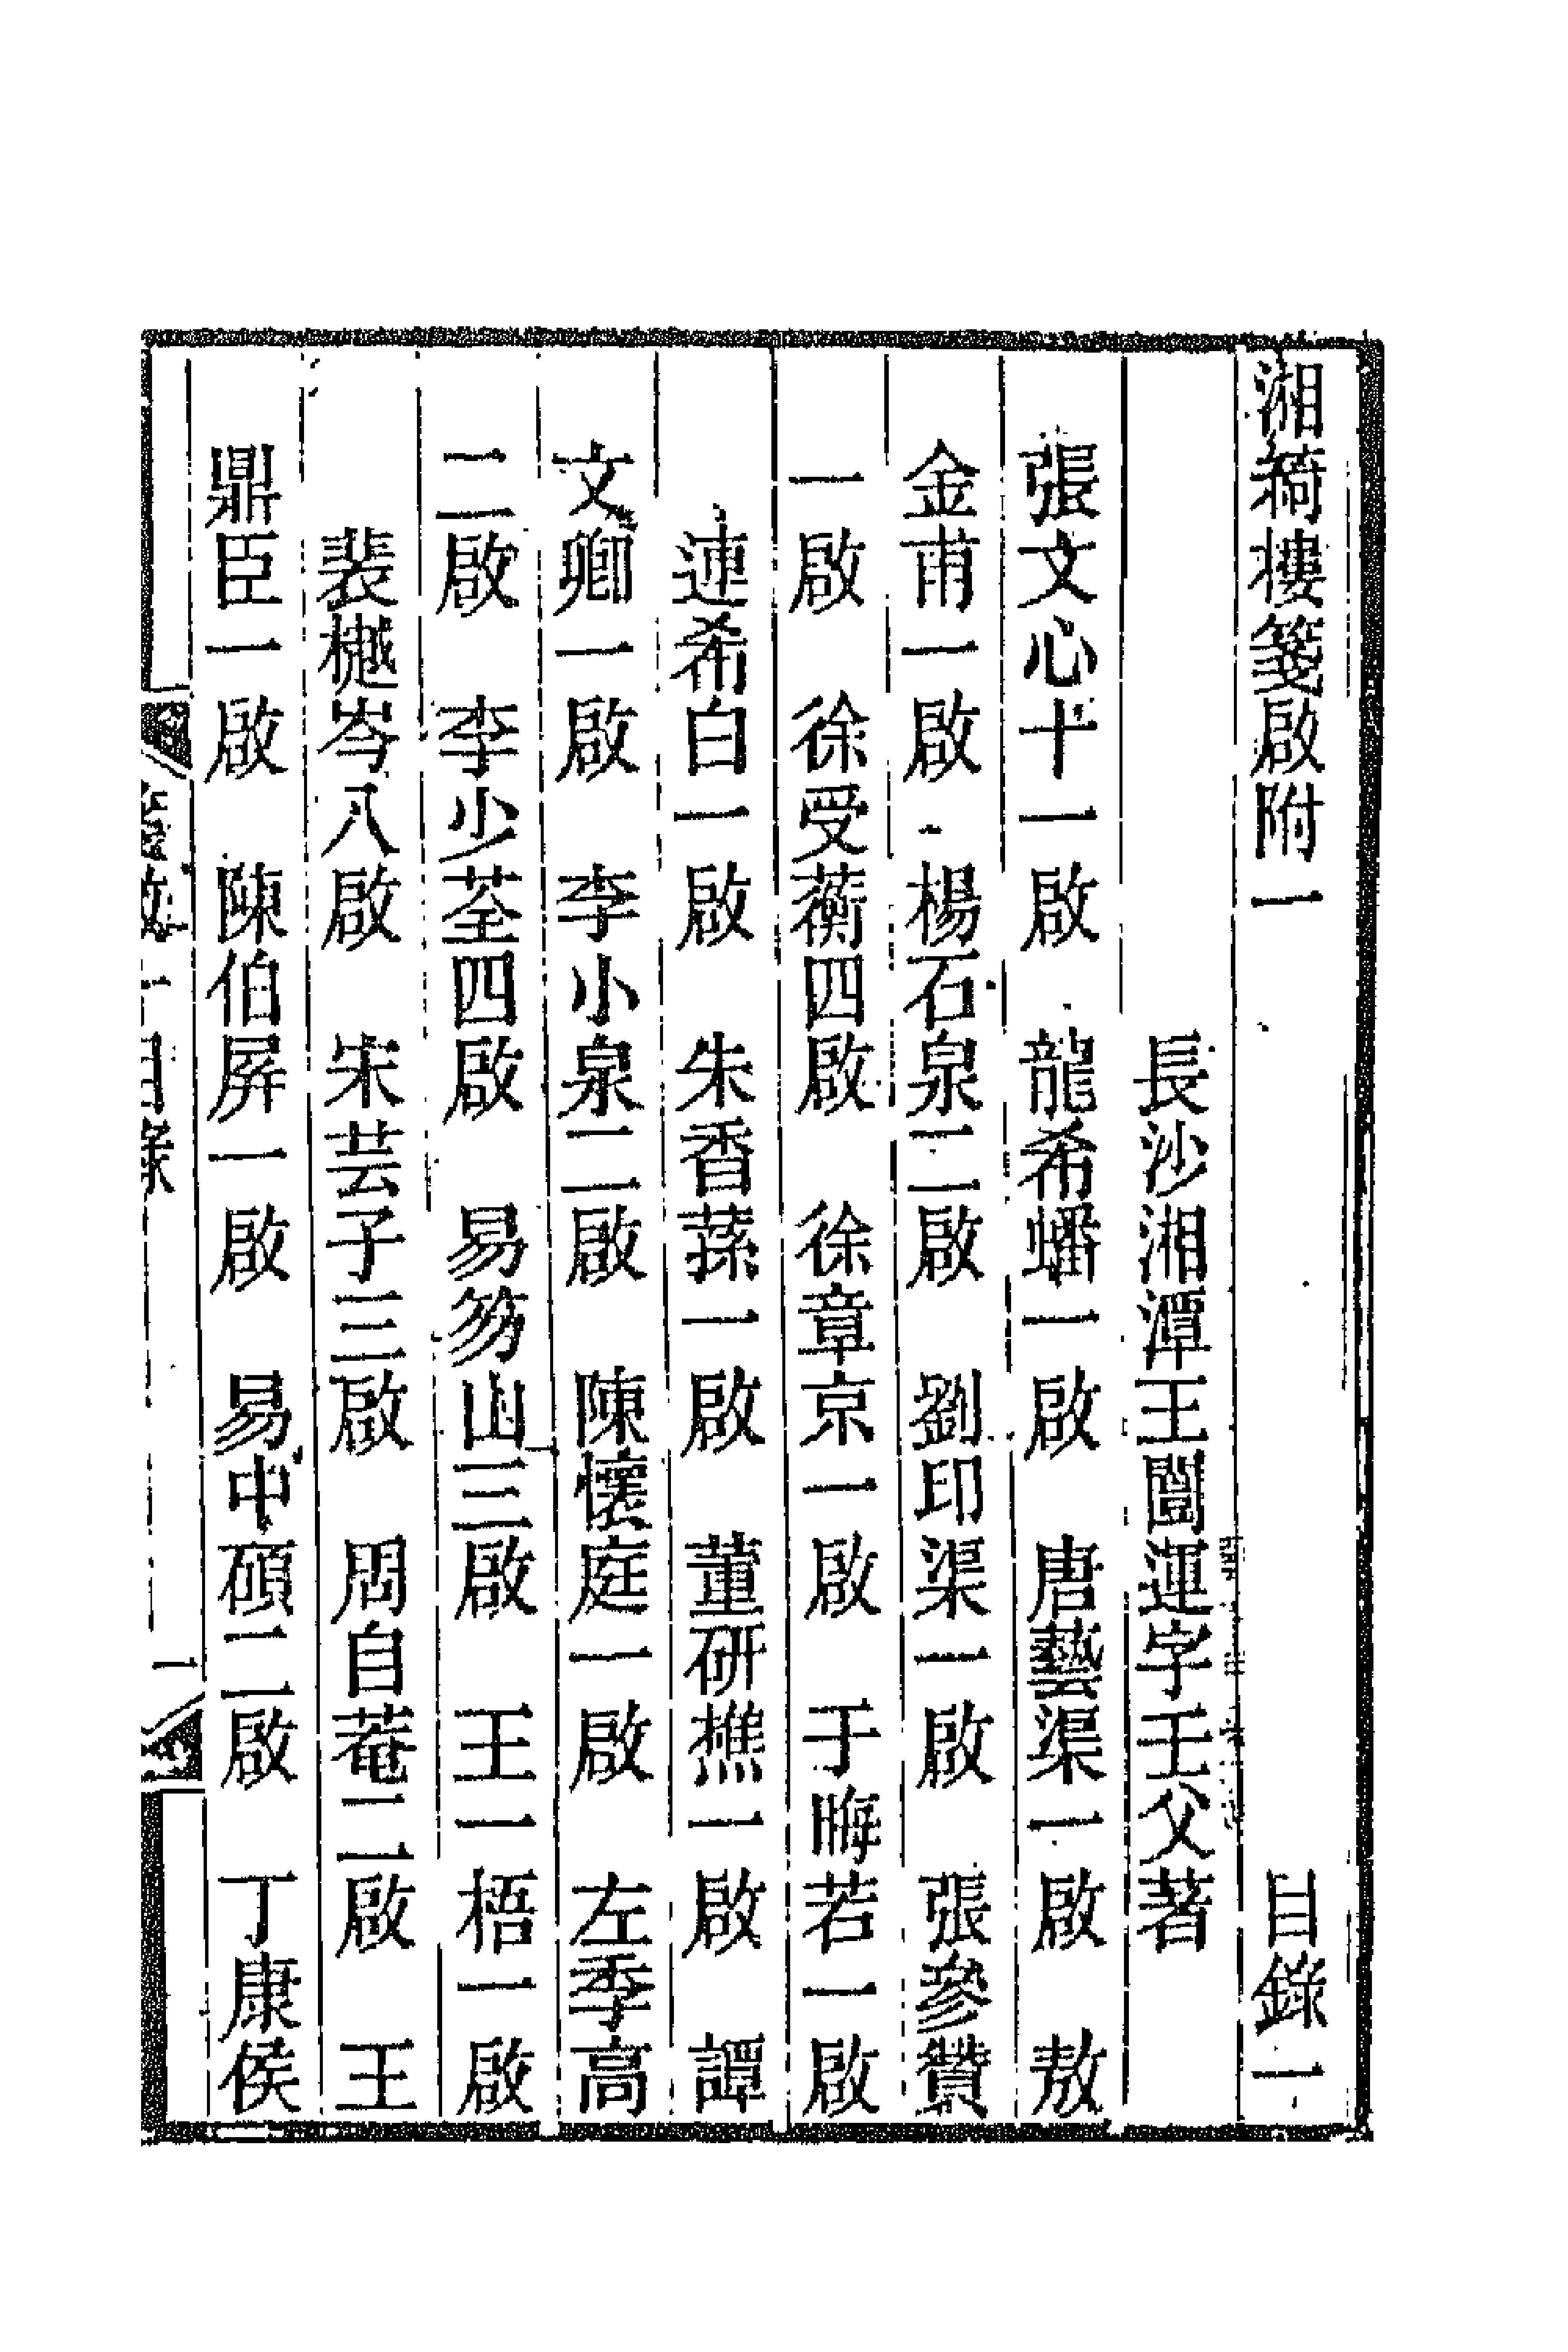 湘綺樓箋啟附一　目錄一
長沙湘潭王闓運字壬父著
張文心十一啟　龍希蟠一啟　唐藝渠一啟　敖
金甫一啟　楊石泉二啟　劉印渠一啟　張參贊
一啟　徐受蘅四啟　徐章京一啟　于晦若一啟
連希白一啟　朱香蓀一啟　董研樵一啟　譚
文卿一啟　李小泉二啟　陳懷庭一啟　左季高
二啟　李少荃四啟　易笏山三啟　王一梧一啟
裴樾岑八啟　宋芸子三啟　周自菴二啟　王
鼎臣一啟　陳伯屏一啟　易中碩二啟　丁康侯
箋啟一目錄　一